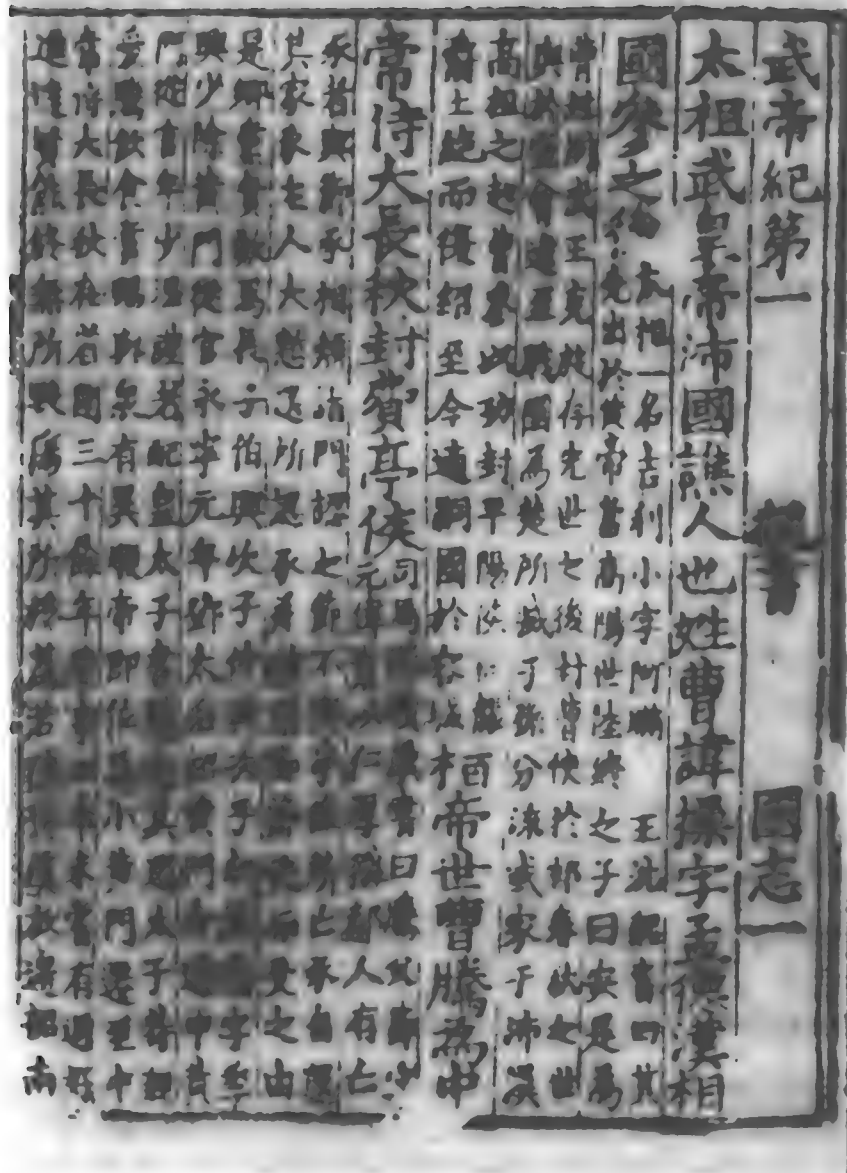 武帝紀第一 魏書 國志一
太祖武皇帝沛國譙人也姓曹諱操字孟德漢相
國參之後
太祖一名吉利小字阿瞞 王沈魏書曰其
先出於黃帝當高陽世陸終之子曰安是爲
曹姓周武王克殷存先世之後封曹俠於邾春秋之世
與於盟會逮至戰國爲楚所滅子孫分流或家于沛漢
高祖之起曹參以功封平陽侯世襲
爵土絶而復紹至今適嗣國於容城
桓帝世曹騰爲中
常侍大長秋封費亭侯
司馬書曰騰父節字
元偉素以仁厚稱鄰人有亡
豕者與節豕相類詣門認之節不與爭所亡豕自還
其家豕主人大慙送所認豕并辭謝節笑而受之由
是鄉黨貴歎焉長子伯興次子仲興次子叔興騰字季
興少除黃門從官永寧元年鄧太后詔黃門令選中黃
門從官年少溫謹者配皇太子書騰應其選太子特親
愛騰飲食賞賜與衆有異順帝即位爲小黃門遷至中
常侍大長秋在省闥三十餘年歷事四帝未嘗有過好
進達賢能終無所毀傷其所稱薦若陳留虞放邊韶南